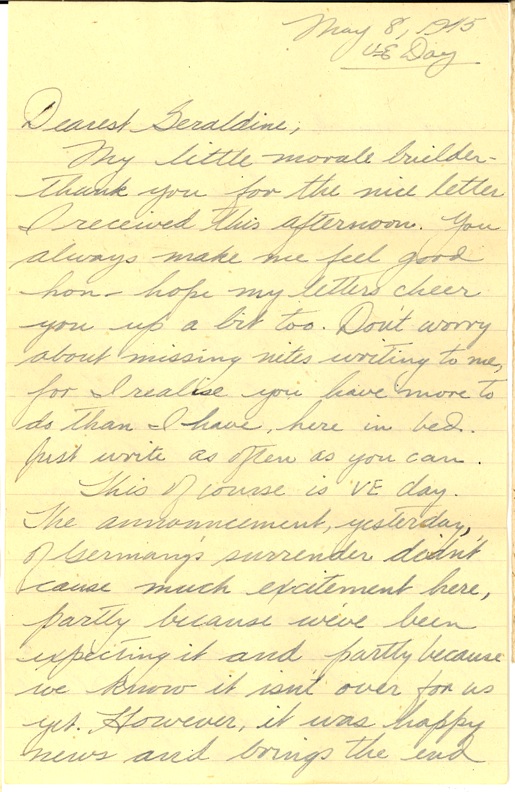 May 8, 1945
V-E Day
Dearest Geraldine,
My little morale builder-
thank you for the nice letter
I received this afternoon. You
always make me feel good
hon - hope my letters cheer
you up a bit too. Don't worry
about missing nites writing to me,
for I realise you have more to
do than I have, here in bed.
Just write as often as you can.
This of course is VE day.
The announcement, yesterday,
of Germany's surrender didn't
cause much excitement here,
partly because we've been
expecting it and partly because
we know it isn't over for us
yet. However, it was happy
news and brings the end